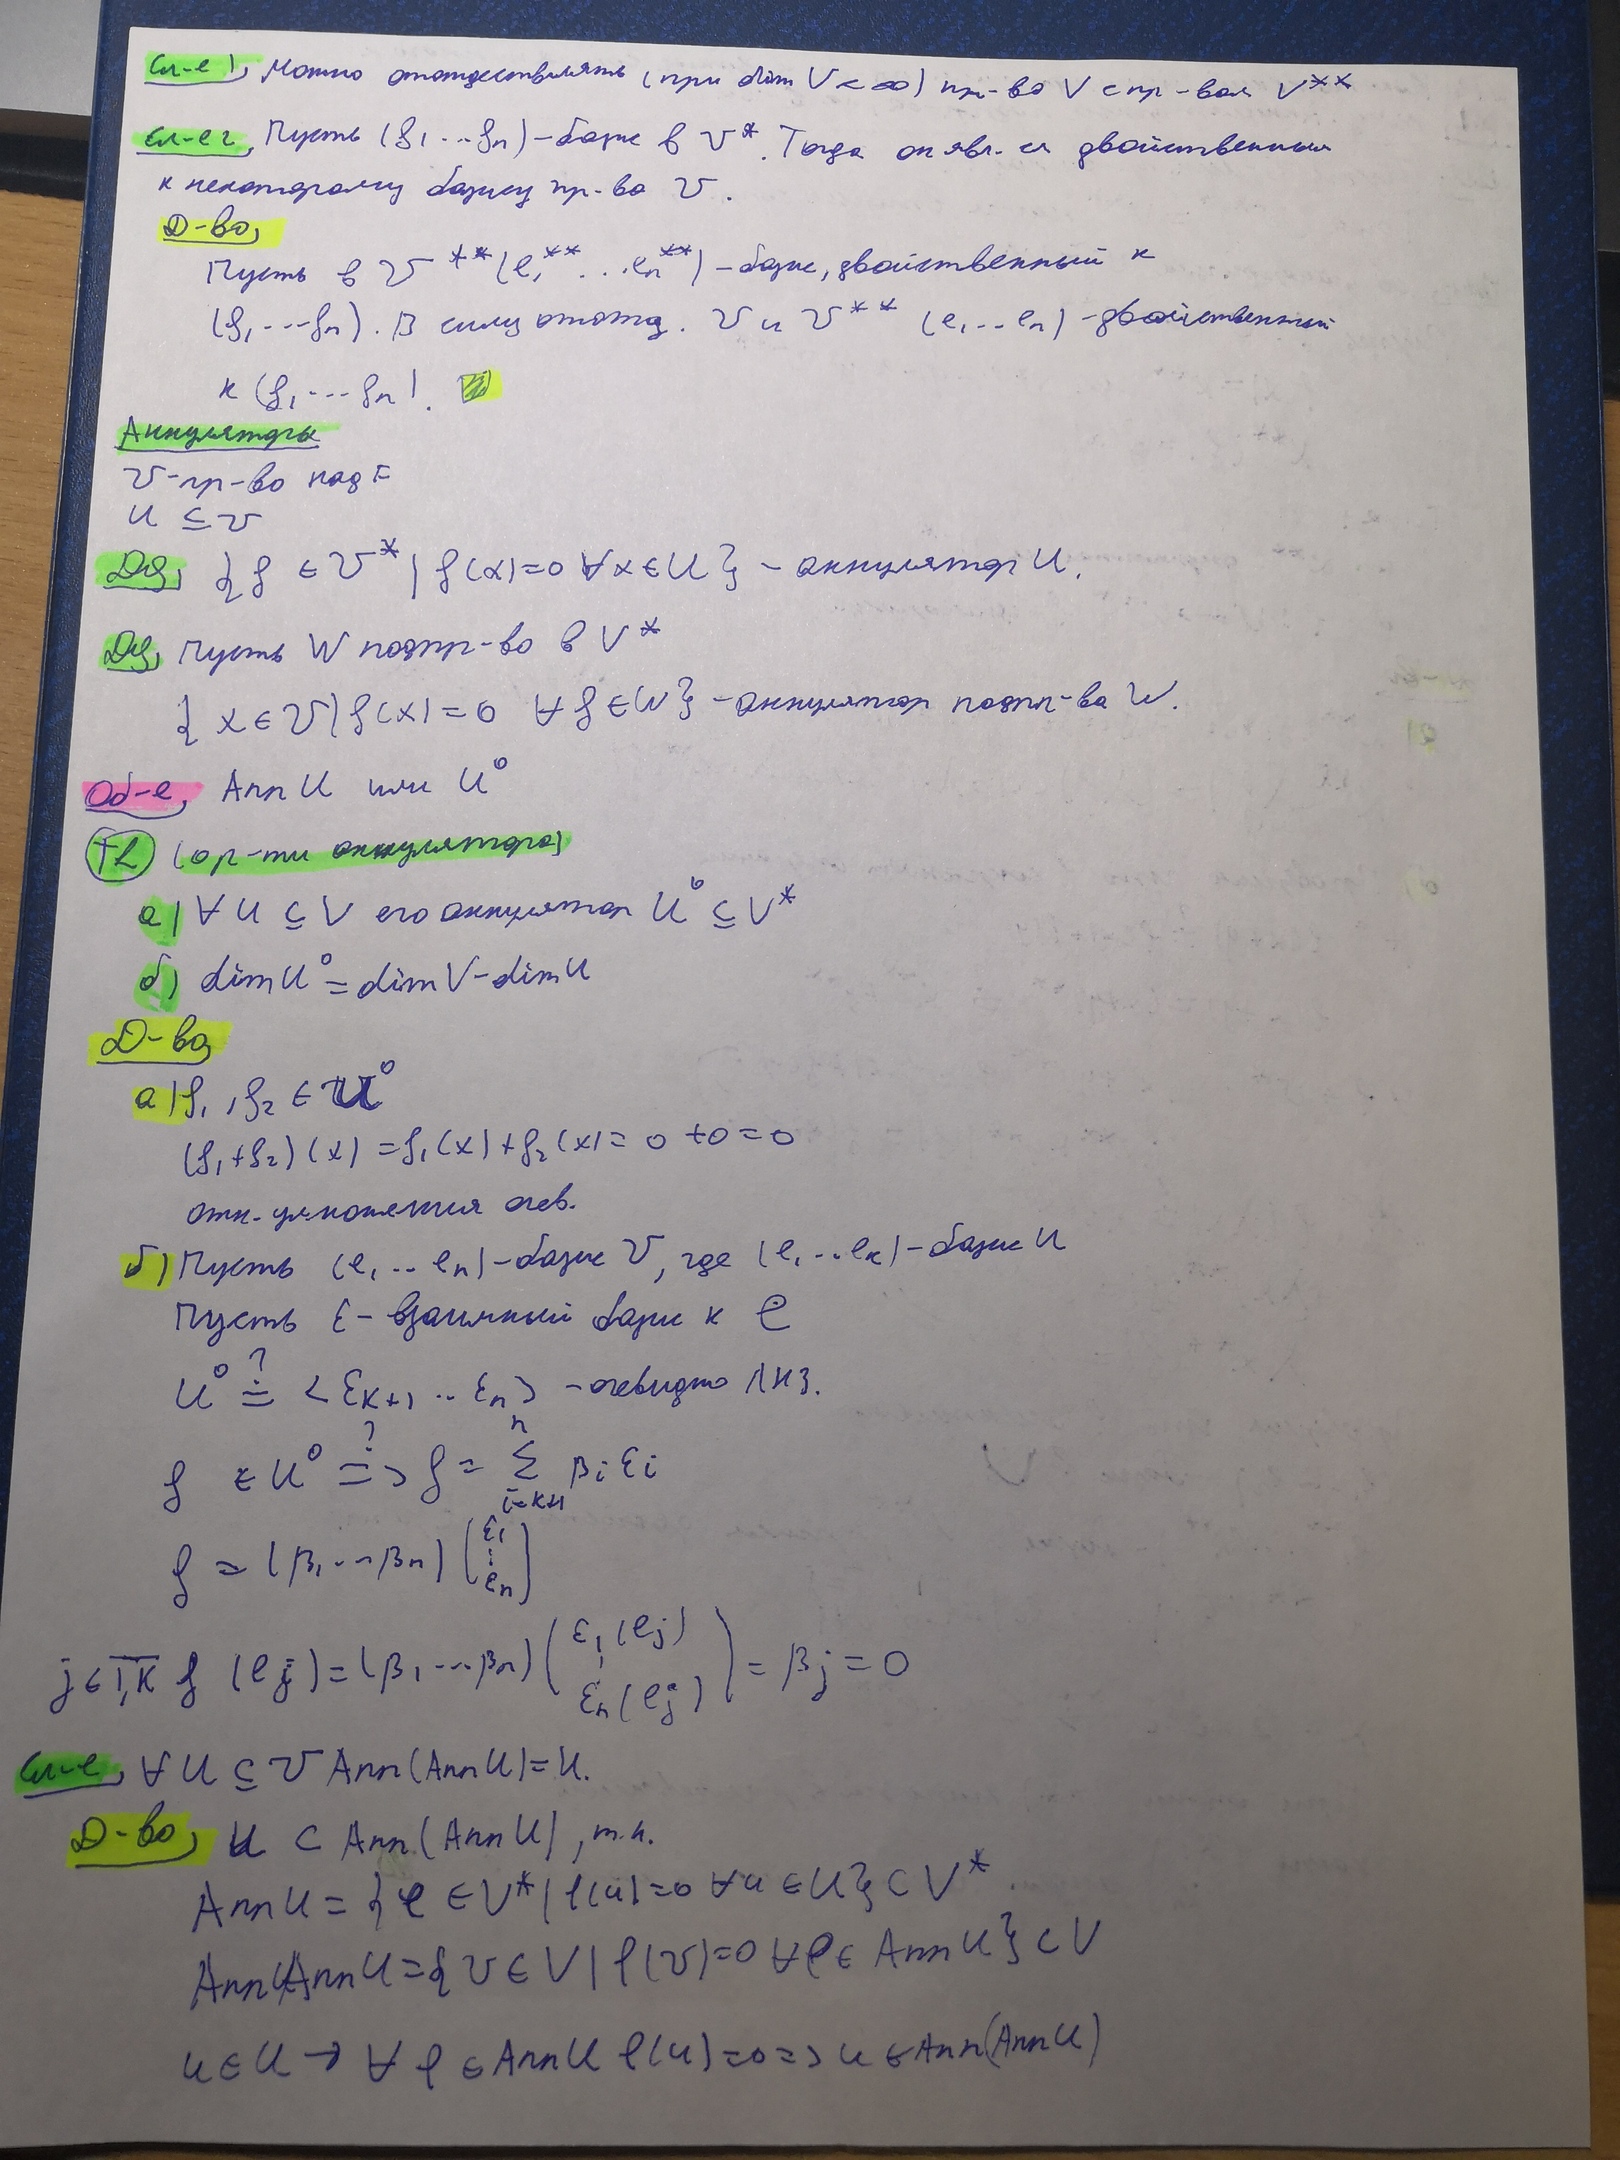 Сл-е 1, Можно отождествлять (при dim V < ∞) пр-во V с пр-вом V**
Сл-е 2, Пусть (f₁ ... fₙ) - базис в V*. Тогда он явл-ся двойственным
к некоторому базису пр-ва V.
Д-во,
Пусть в V** (e₁** ... eₙ**) - базис, двойственный к
(f₁, ... fₙ). В силу отожд. V и V** (e₁ ... eₙ) - двойственный
к (f₁, ... fₙ).
Аннуляторы
V-пр-во над F
U ⊆ V
Df, {f ∈ V* | f(x)=0 ∀x∈U} - аннулятор U.
Df, Пусть W подпр-во в V*
{x ∈ V | f(x)=0 ∀f∈W} - аннулятор подпр-ва W.
Об-е, Ann U или U⁰
T2 (ор-ти аннулятора)
а) ∀ U ⊆ V его аннулятор U⁰ ⊆ V*
б) dim U⁰ = dim V - dim U
Д-во,
а) f₁, f₂ ∈ U⁰
(f₁+f₂)(x) = f₁(x) + f₂(x) = 0 + 0 = 0
отн. умножения очев.
б) Пусть (e₁ .. eₙ) - базис V, где (e₁ .. eₖ) - базис U
Пусть ε - взаимный базис к e
U⁰ ≟ <εₖ₊₁ .. εₙ> - очевидно ЛНЗ.
f ∈ U⁰ ?⇒ f = Σ_{i=k+1}^{n} βᵢ εᵢ
f = (β₁ ... βₙ) (ε₁ ⋮ eₙ)
j ∈ 1,k f(eⱼ) = (β₁, ... βₙ) (ε₁(eⱼ) ⋮ εₙ(eⱼ)) = βⱼ = 0
Сл-е, ∀ U ⊆ V Ann(Ann U) = U.
Д-во, U ⊂ Ann(Ann U), т.к.
Ann U = {φ ∈ V* | φ(u)=0 ∀u ∈ U} ⊂ V*
Ann(Ann U = {v ∈ V | φ(v)=0 ∀φ ∈ Ann U} ⊂ V
u ∈ U → ∀ φ ∈ Ann U φ(u)=0 => u ∈ Ann(Ann U)